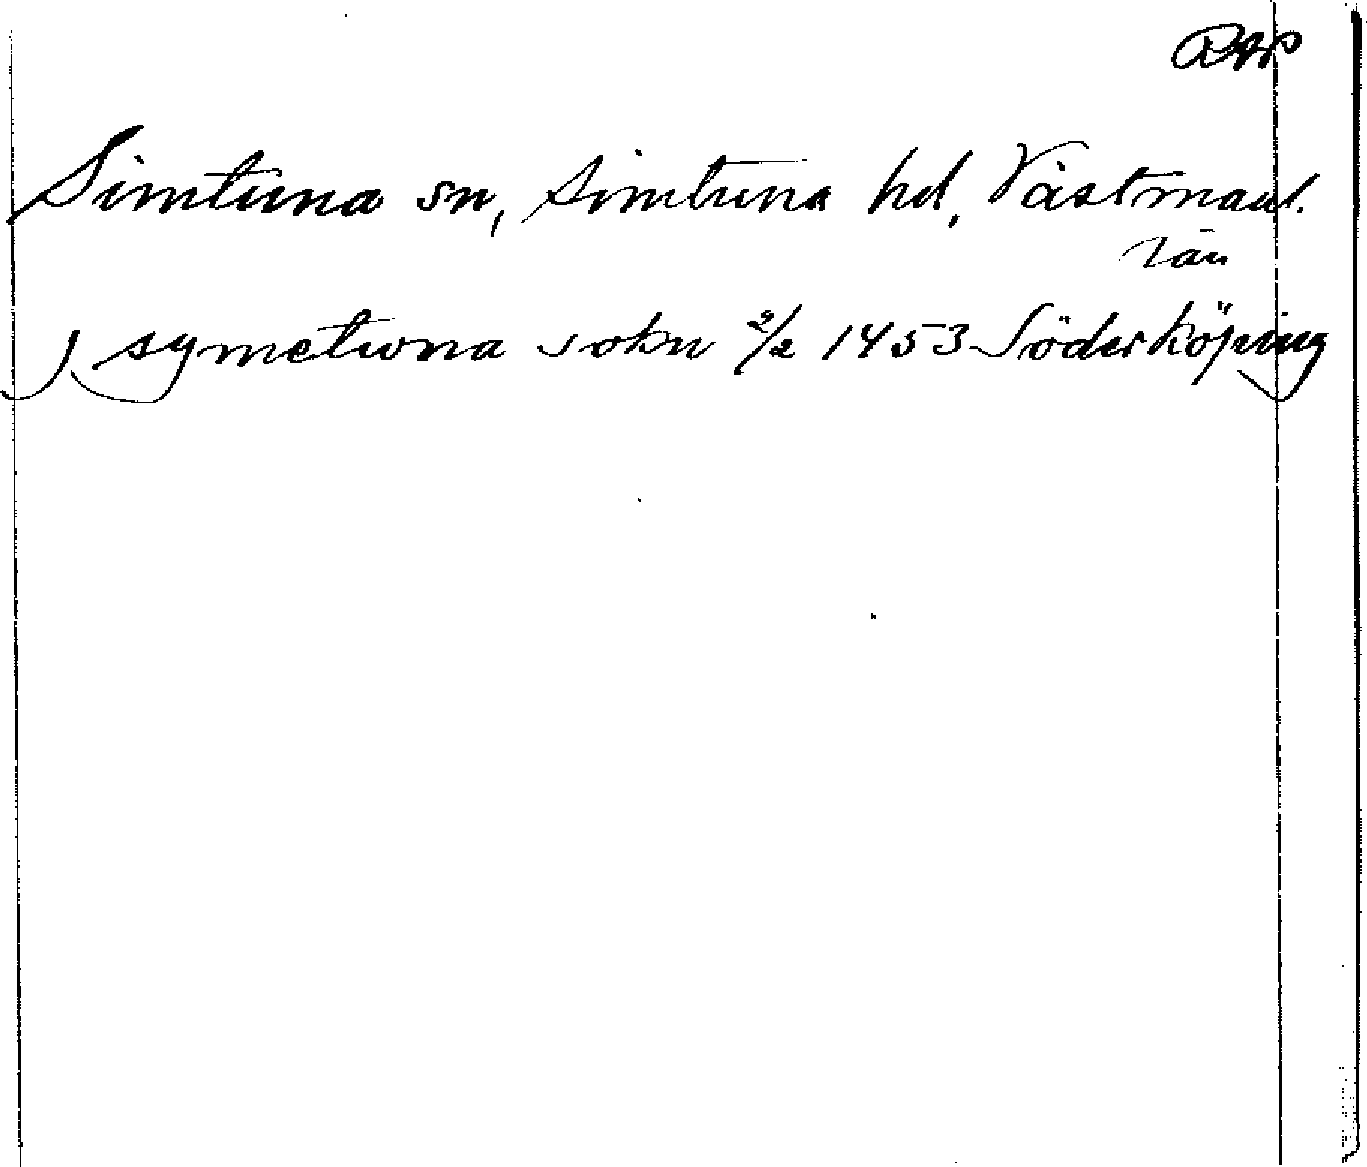 Simtuna sn, Simtuna hd, Västmanl.
län
j symetuna sokn 2/2 1453 Söderköping